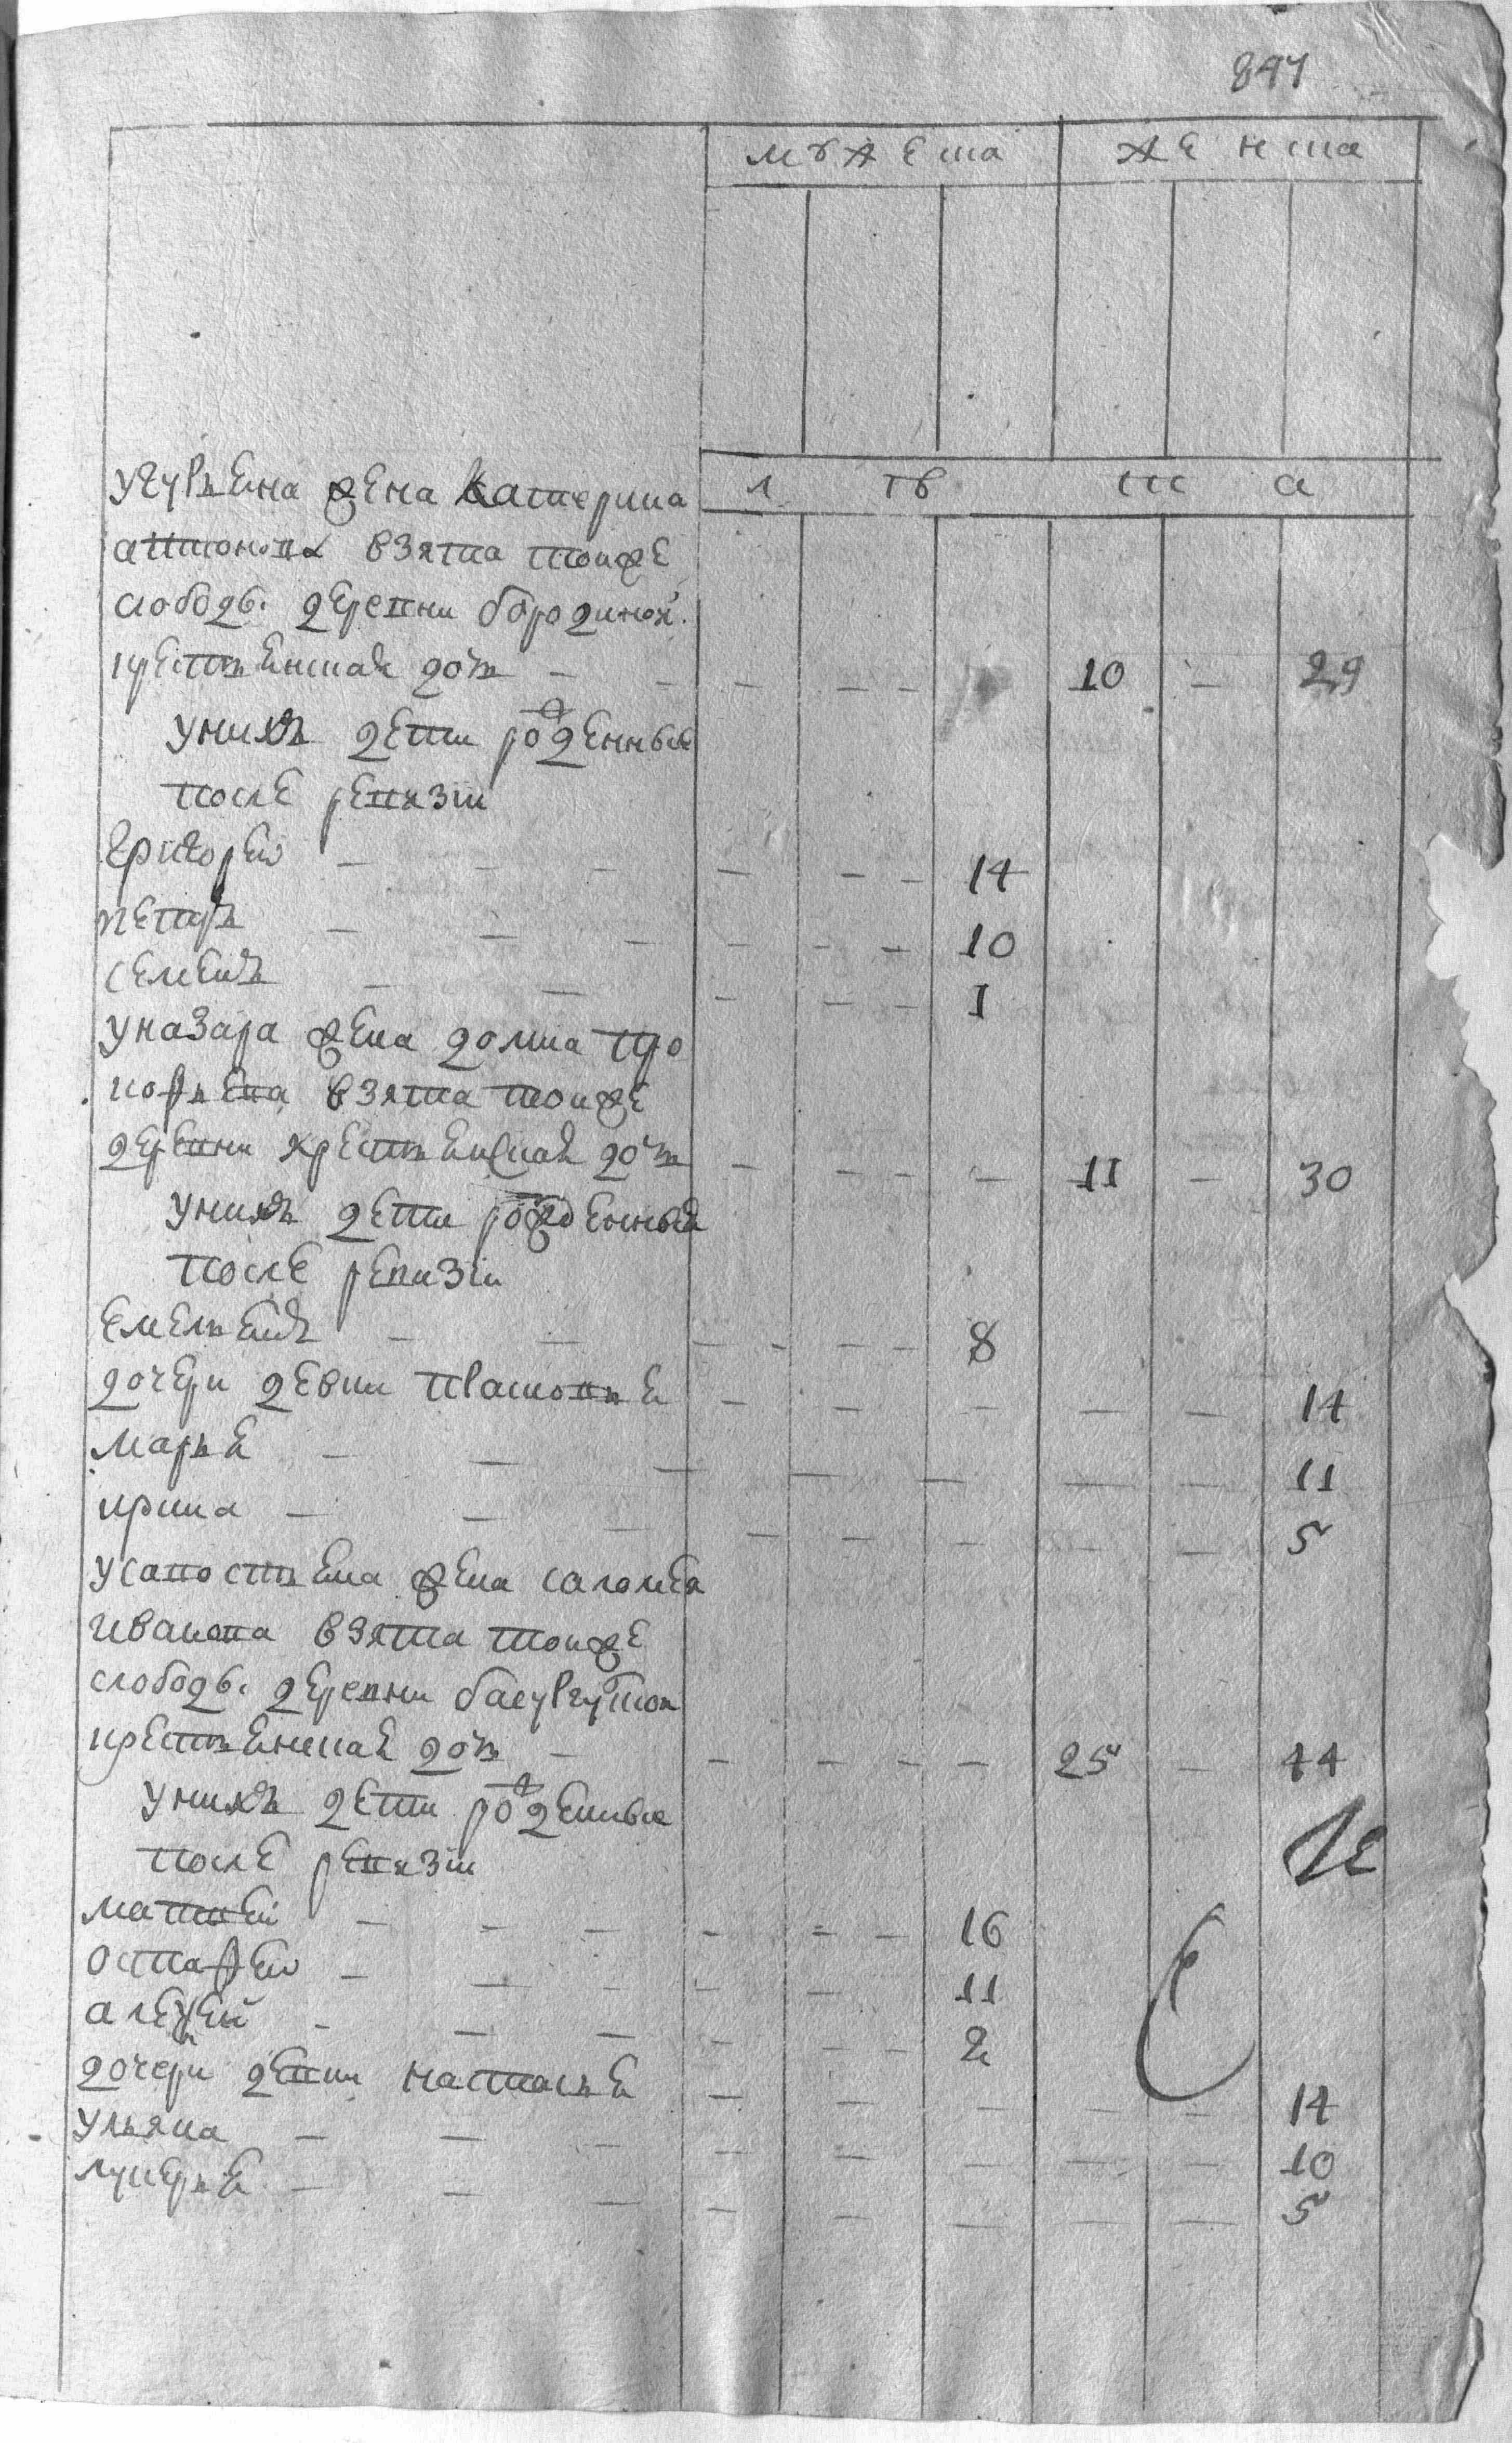 847
мужеска женска
лѣта
жена катерина
антонова взята тоиже
слободы деревни бородиной
крестьянская дочь 10 29
у нихъ дети рожденные
после ревизiи
григореи 14
петръ 10
семенъ 1
у назара жена домна про
кофьева взята тоиже
деревни крестьянская дочь 11 30
у нихъ дети рожденныя
после ревизiи
емельянъ 8
дочери девки 14
марья 11
ирина 5
у савостьяна жена саломея
иванова взята тоиже
слободы деревни
крестьянская дочь 25 44
у нихъ дети рожденные
после ревизiи
матвеи 16
остафеи 11
алексеи 2
дочери девки настасья 14
ульяна 10
лукерья 5